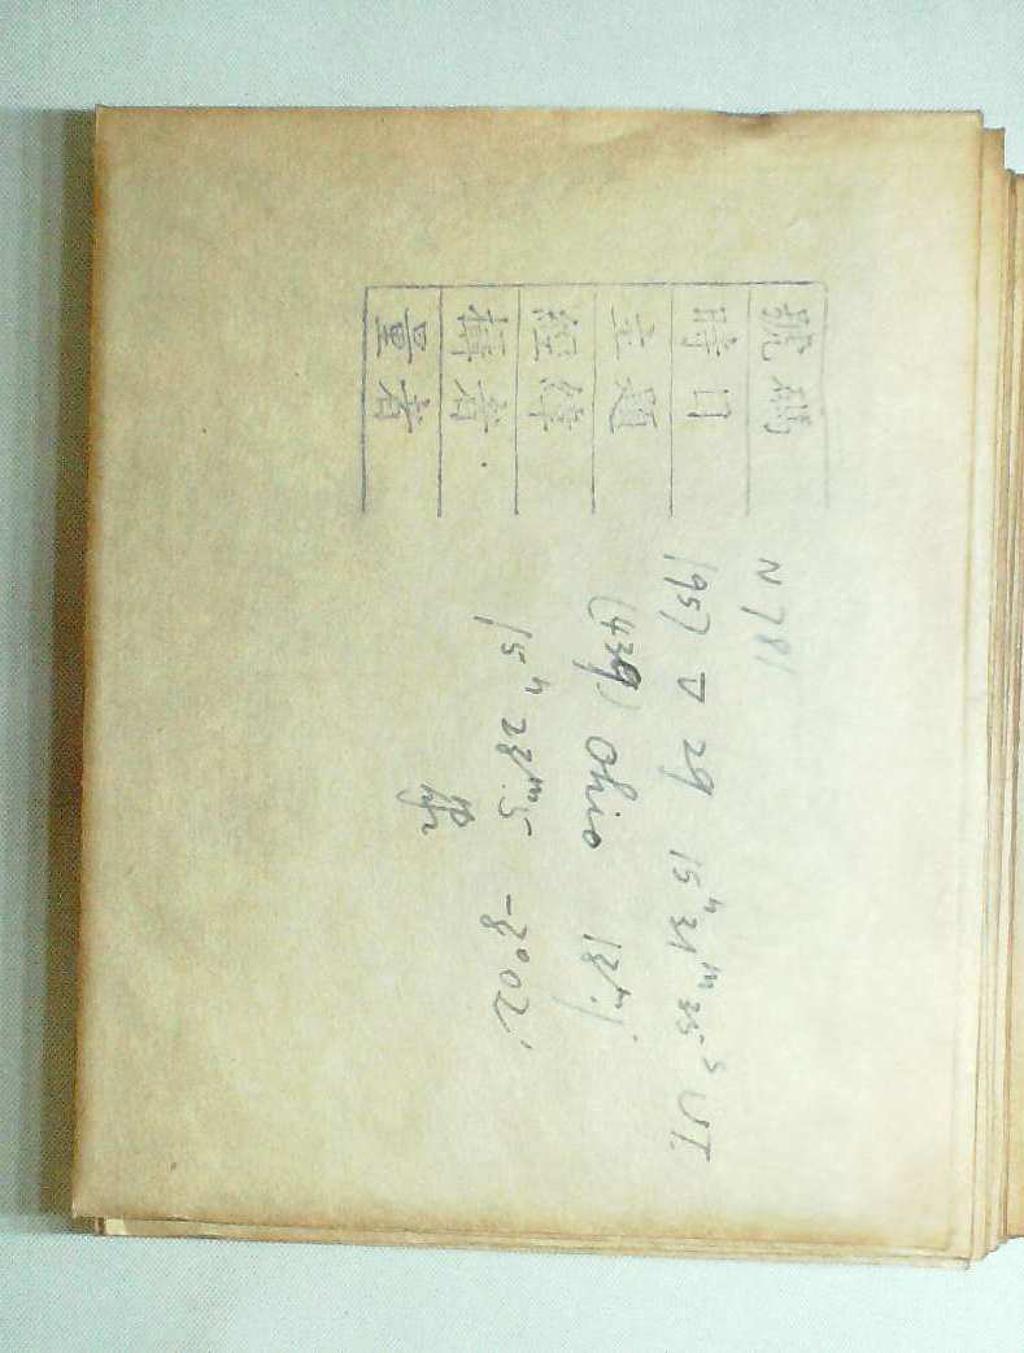 號碼 N 781
時日 1957 V 29 15h 31m 35s UT
主題 (439) Ohio 13m.1
經緯 15h 28m.5 -8°02'
攝者
量者